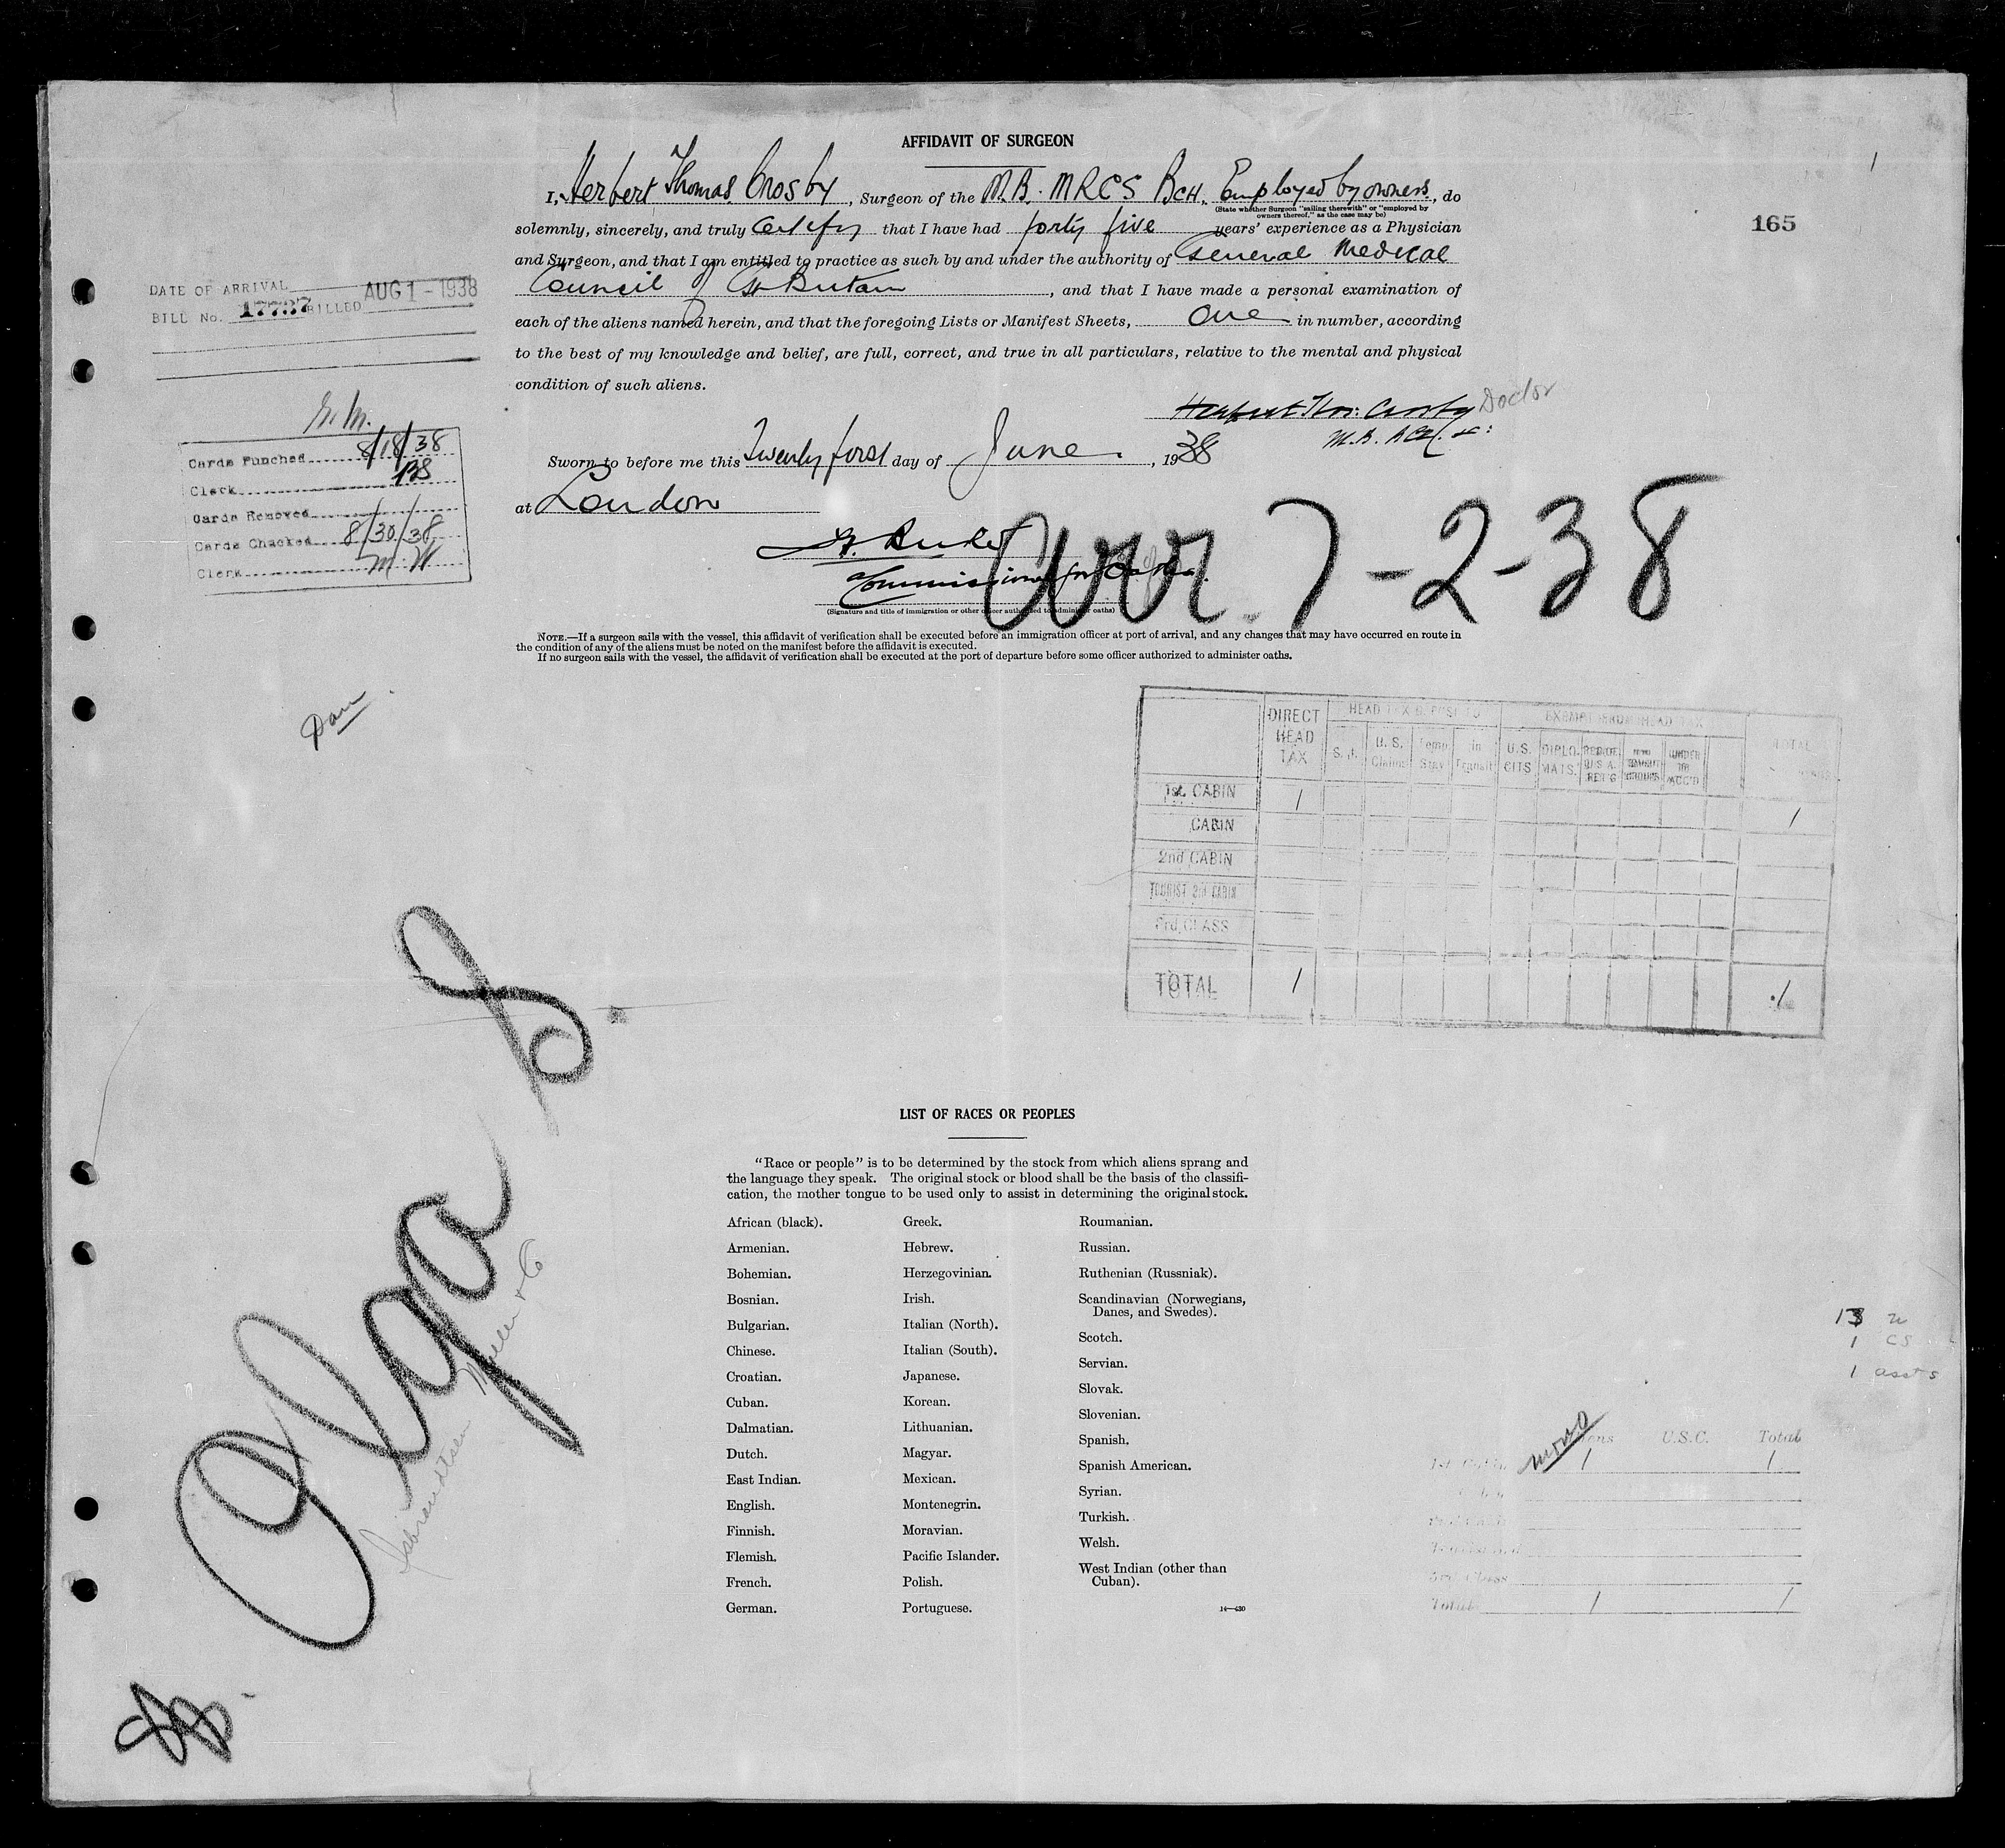 AFFIDAVIT OF SURGEON
I, Herbert Thomas Crosby, Surgeon of the M.B. MRCS BCH. Employed by owners, do
(State whether Surgeon "sailing therewith" or "employed by
owners thereof," as the case may be)
solemnly, sincerely, and truly certify that I have had forty five years' experience as a Physician
and Surgeon, and that I am entitled to practice as such by and under the authority of General Medical
Council of Gt Britain, and that I have made a personal examination of
each of the aliens named herein, and that the foregoing Lists or Manifest Sheets, One in number, according
to the best of my knowledge and belief, are full, correct, and true in all particulars, relative to the mental and physical
condition of such aliens.
Herbert Thos: Crosby Doctor
M.B. BCH. &:
Sworn to before me this Twenty first day of June, 1938
at London
Commissioner for Oaths.
(Signature and title of immigration or other officer authorized to administer oaths)
7-2-38
NOTE.—If a surgeon sails with the vessel, this affidavit of verification shall be executed before an immigration officer at port of arrival, and any changes that may have occurred en route in
the condition of any of the aliens must be noted on the manifest before the affidavit is executed.
If no surgeon sails with the vessel, the affidavit of verification shall be executed at the port of departure before some officer authorized to administer oaths.
1
165
DATE OF ARRIVAL
BILL No. 17737 BILLED AUG 1 - 1938
Cards Punched 8/18/38
Clerk
Cards Removed
Cards Checked 8/30/38
Clerk MW
DIRECT HEAD TAX
HEAD TAX DEPOSITS
EXEMPT FROM HEAD TAX
TOTAL
S. I.
U. S. Claims
Temp Stay
In Transit
U.S. CITS
DIPLO- MATS.
UNDER 16 ACC'D
1st CABIN 1 1
CABIN
2nd CABIN
TOURIST 3rd CABIN
3rd CLASS
TOTAL 1 1
Olga S.
Isbrandtsen Moller & Co
LIST OF RACES OR PEOPLES
"Race or people" is to be determined by the stock from which aliens sprang and
the language they speak. The original stock or blood shall be the basis of the classifi-
cation, the mother tongue to be used only to assist in determining the original stock.
African (black).
Armenian.
Bohemian.
Bosnian.
Bulgarian.
Chinese.
Croatian.
Cuban.
Dalmatian.
Dutch.
East Indian.
English.
Finnish.
Flemish.
French.
German.
Greek.
Hebrew.
Herzegovinian.
Irish.
Italian (North).
Italian (South).
Japanese.
Korean.
Lithuanian.
Magyar.
Mexican.
Montenegrin.
Moravian.
Pacific Islander.
Polish.
Portuguese.
Roumanian.
Russian.
Ruthenian (Russniak).
Scandinavian (Norwegians,
Danes, and Swedes).
Scotch.
Servian.
Slovak.
Slovenian.
Spanish.
Spanish American.
Syrian.
Turkish.
Welsh.
West Indian (other than
Cuban).
14—430
1 CS
1 assts
U.S.C. Total
1st Cabin 1 1
3rd Class
Total 1 1